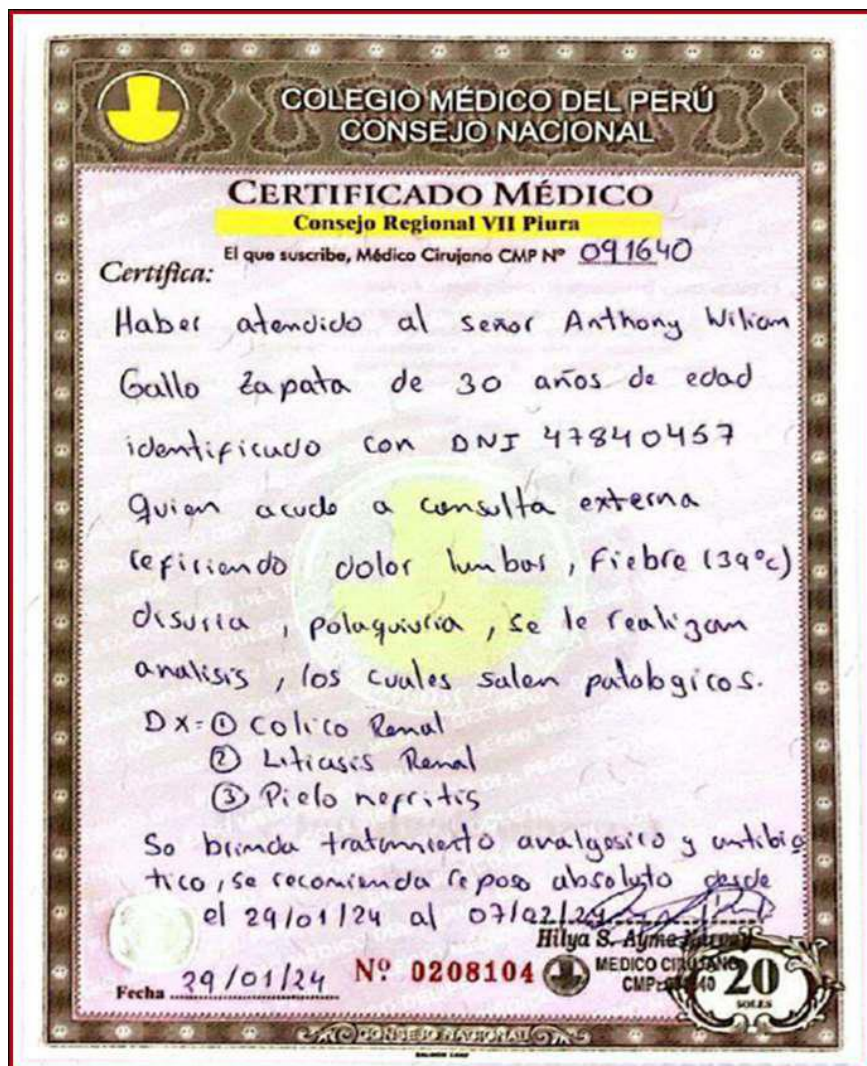 COLEGIO MÉDICO DEL PERÚ
CONSEJO NACIONAL
CERTIFICADO MÉDICO
Consejo Regional VII Piura
El que suscribe, Médico Cirujano CMP Nº 091640
Certifica:
Haber atendido al señor Anthony Wiliam
Gallo Zapata de 30 años de edad
identificado con DNI 47840457
quien acude a consulta externa
refiriendo dolor lumbar, fiebre (39°c)
disuria, polaquiuria, se le realizan
analisis, los cuales salen patologicos.
Dx= ① Colico Renal
② Litiasis Renal
③ Pielo nefritis
Se brinda tratamiento analgesico y antibio
tico, se recomienda reposo absoluto desde
el 29/01/24 al 07/02/24
Hilya S. Ayma
MEDICO CIRUJANO
CMP:
20
SOLES
Fecha 29/01/24 Nº 0208104
CONSEJO NACIONAL